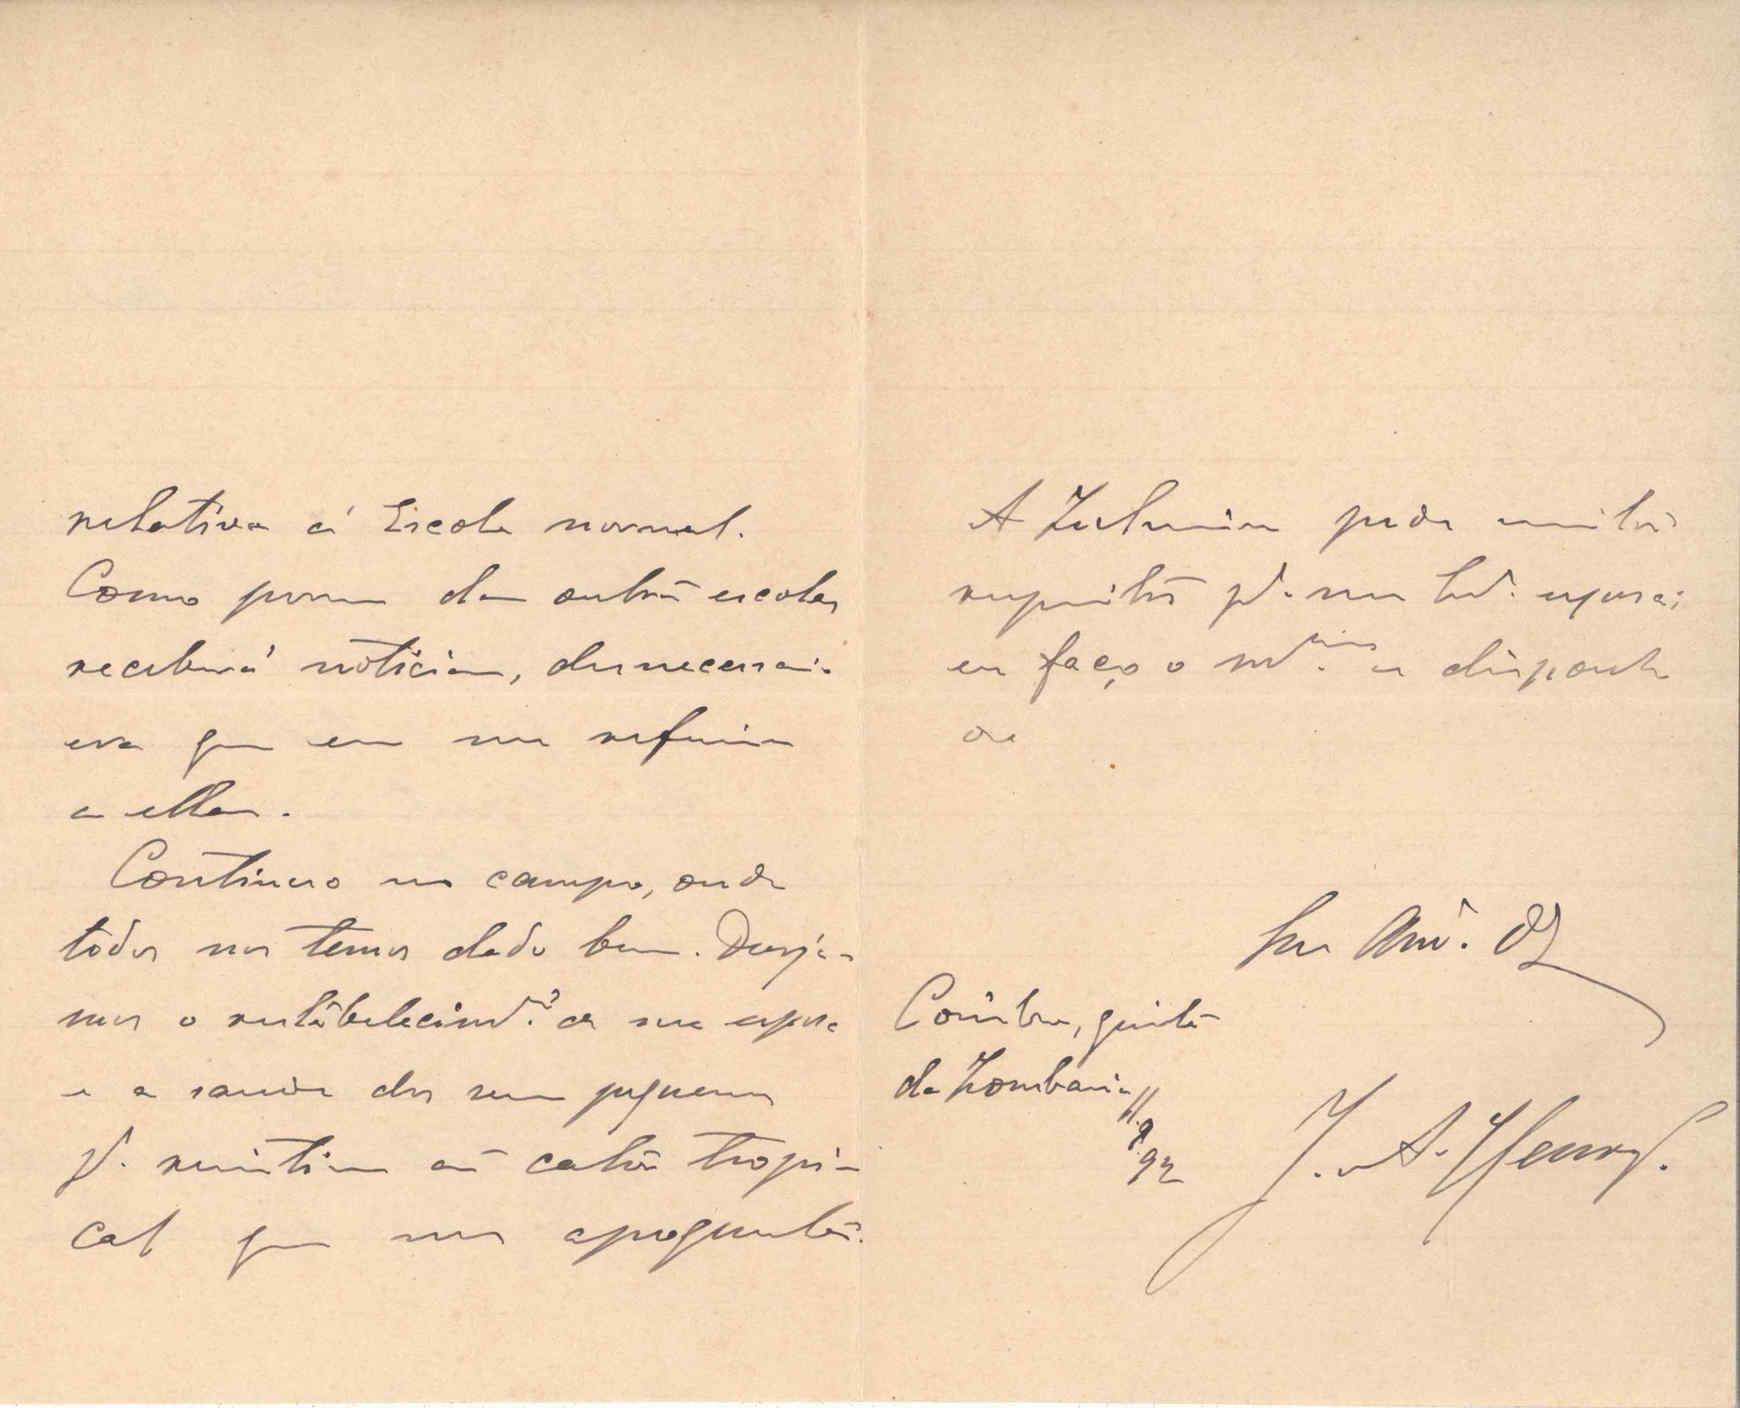 relativa á Escola normal.
Como porem das outras escolas
receberá noticias, desnecessari-
era que eu me referisse
a ellas.
Continuo no campo, onde
todos nos temos dado bem. Deseja-
mos o restabelecimto. de sua esposa
e a saude dos seus pequenos
pa. resistirem ao calor tropi-
cal que nos
A Zulmira pede muitos
respeitos pa. sua Exa. esposa;
eu faço o mesmo e disponha
do
Seu Amo. Obo
Coimbra, quinta
da Zombaria
11.9.92
J. A. Henrs.